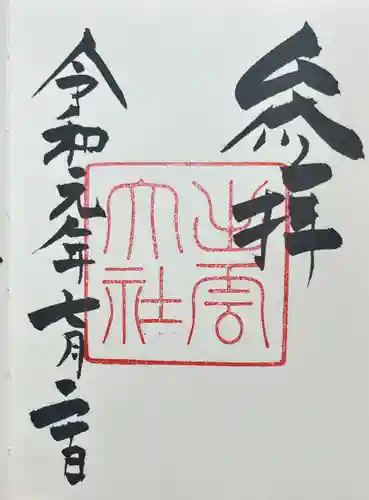 参拝
出雲
大社
令和元年七月二日